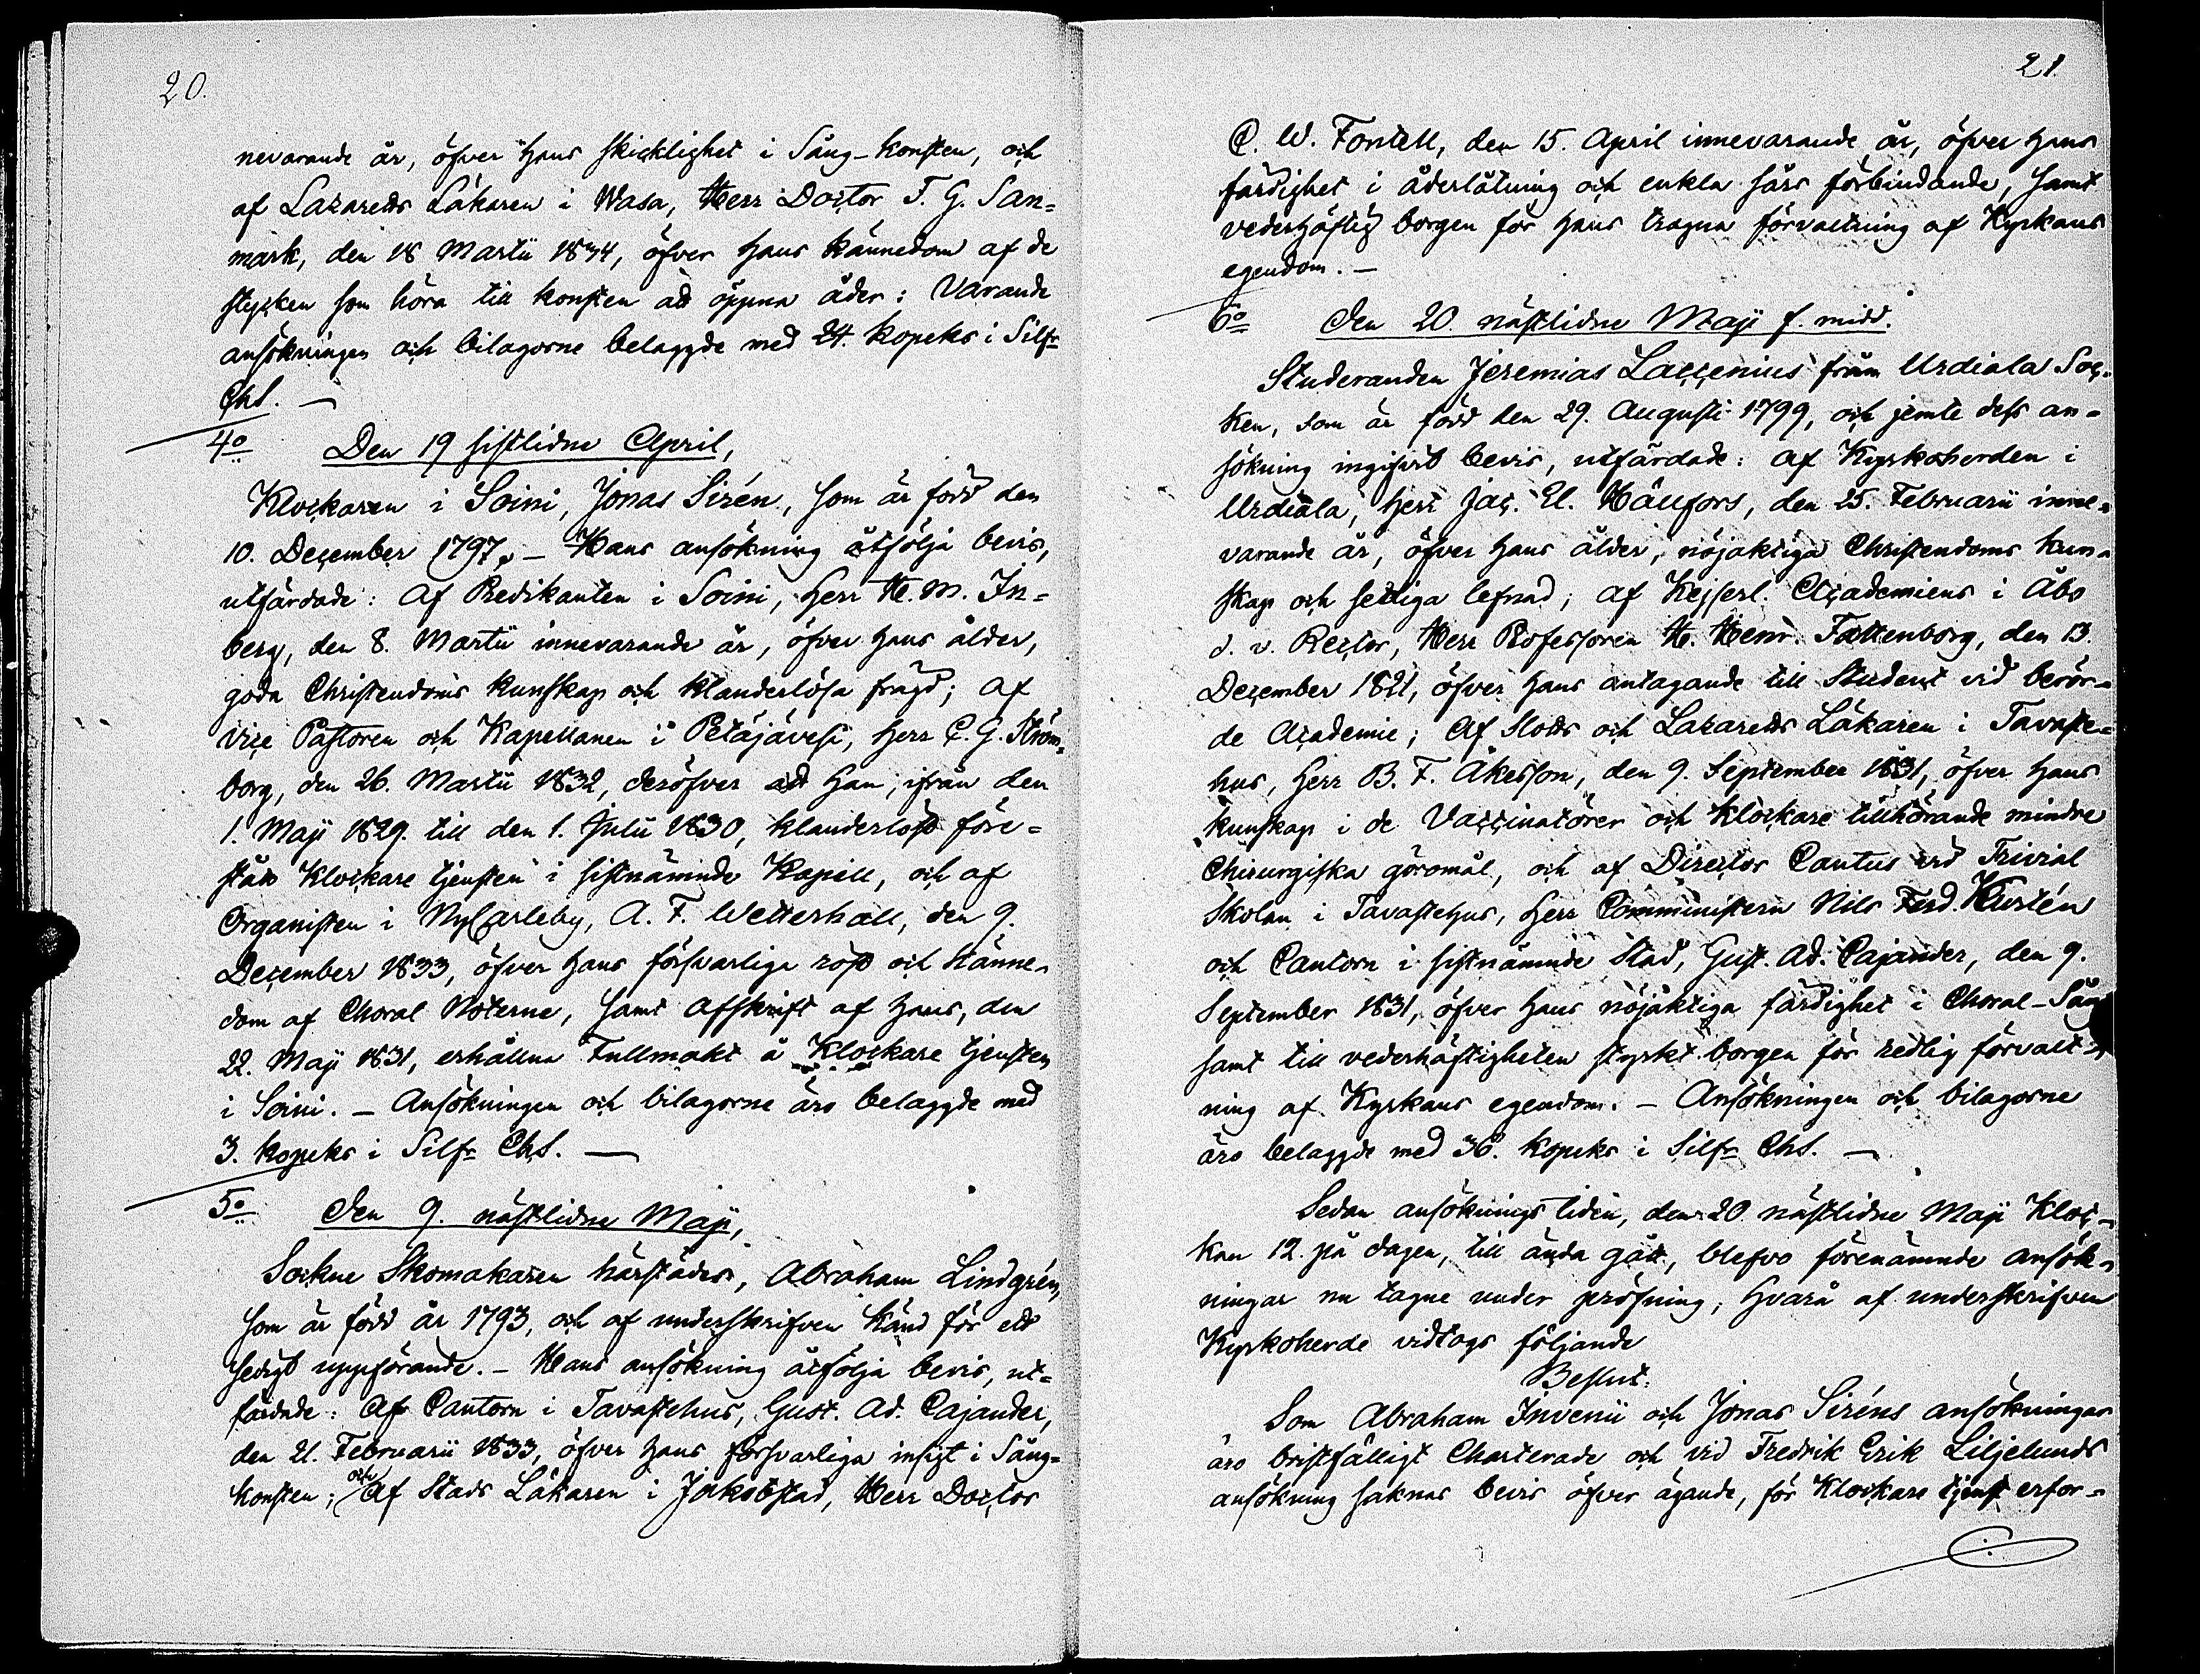 20.
nevarande år, öfver Hans skicklighet i Sång-konsten, och
af Lazaretts Läkaren i Wasa, Herr Doctor F. G. San=
mark, den 18 Martii 1834, öfver Hans kännedom af de
stycken som höra till konsten att öppna åder: Varande
ansökningen och bilagorne belaggde med 24. Kopeks i Silfr
Chs. —
4o Den 19 sistlidne April,
Klockaren i Soini, Jonas Sirén, som är född den
10. December 1797. – Hans ansökning åtfölja bevis,
utfärdade: Af Predikanten i Soini, Herr H. M. In=
berg, den 8. Martii innevarande år, öfver Hans ålder,
goda Christendoms kunskap och klanderlösa frägd; Af
Vice Pastoren och Kapellanen i Petäjävesi, Herr C. G. Ström=
borg, den 26. Martii 1832, deröfver att Han, ifrån den
1. Maji 1829. till den 1. Julii 1830, klanderlöst före=
stått Klockare tjensten i sistnämnde Kapell, och af
Organisten i NyCarleby, A. F. Wetterhall, den 9.
December 1833, öfver Hans försvarliga röst och känne=
dom af Choral Noterne, samt Affskrift af Hans, den
22. Maji 1831, erhållna Fullmakt å Klockare tjensten
i Soini. – Ansökningen och bilagorne äro belaggde med
3. kopeks i Silfr Chs. —
5o Den 9. nästlidne Maji,
Sockne Skomakaren härstädes, Abraham Lindgrén,
som är född år 1793, och af underskrifven känd för ett
sedigt uppförande. – Hans ansökning åtfölja bevis, ut=
färdade: Af Cantorn i Tavastehus, Gust. Ad. Cajander,
den 21. Februarii 1833, öfver Hans försvarliga insigt i Sång=
konsten; och Af Stads Läkaren i Jakobstad, Herr Doctor
21.
C. W. Fontell, den 15. April innevarande år, öfver Hans
färdighet i åderlåtning och enkla sårs förbindande, samt
vederhäftig borgen för Hans trogna förvaltning af Kyrkans
egendom. —
6o Den 20 nästlidne Maji f. midd.
Studeranden Jeremias Laccenius från Urdiala Soc=
ken, som är född den 29. Augusti 1799, och jemte dess an=
sökning ingifvit bevis, utfärdade: Af Kyrkoherden i
Urdiala, Herr Jac. El. Hänfors, den 25. Februarii inne=
varande år, öfver Hans ålder, nöjaktiga Christendoms kun=
skap och sediga lefnad; Af Kejserl. Academiens i Åbo
d. v. Rector, Herr Professoren H. Henr. Fattenborg, den 13.
December 1821, öfver Hans antagande till Student vid berör=
de Academie; Af Slotts och Lazaretts Läkaren i Tavaste=
hus, Herr B. F. Åkesson, den 9. September 1831, öfver Hans
kunskap i de Vaccinatörer och Klockare tillhörande mindre
Chirurgiska göromål, och af Director Cantus vid Trivial
Skolan i Tavastehus, Herr Comministern Nils Ferd. Kurtén
och Cantorn i sistnämnde Stad, Gust. Ad. Cajander, den 9.
September 1831, öfver Hans nöjaktiga färdighet i Choral-Sång
samt till vederhäftigheten styrkt borgen för redlig förvalt=
ning af Kyrkans egendom. – Ansökningen och bilagorne
äro belaggde med 36. kopeks i Silfr Chs. —
Sedan ansöknings tiden, den 20 nästlidne Maji Kloc=
kan 12. på dagen, till ända gått, blefvo förenämnde ansök=
ningar nu tagne under pröfning, hvarå af underskrifven
Kyrkoherde vidtogs följande
Beslut:
Som Abraham Invenii och Jonas Siréns ansökningar
äro bristfälligt Charterade och vid Fredrik Erik Liljelunds
ansökning saknas bevis öfver ägande, för Klockare tjenst erfor=